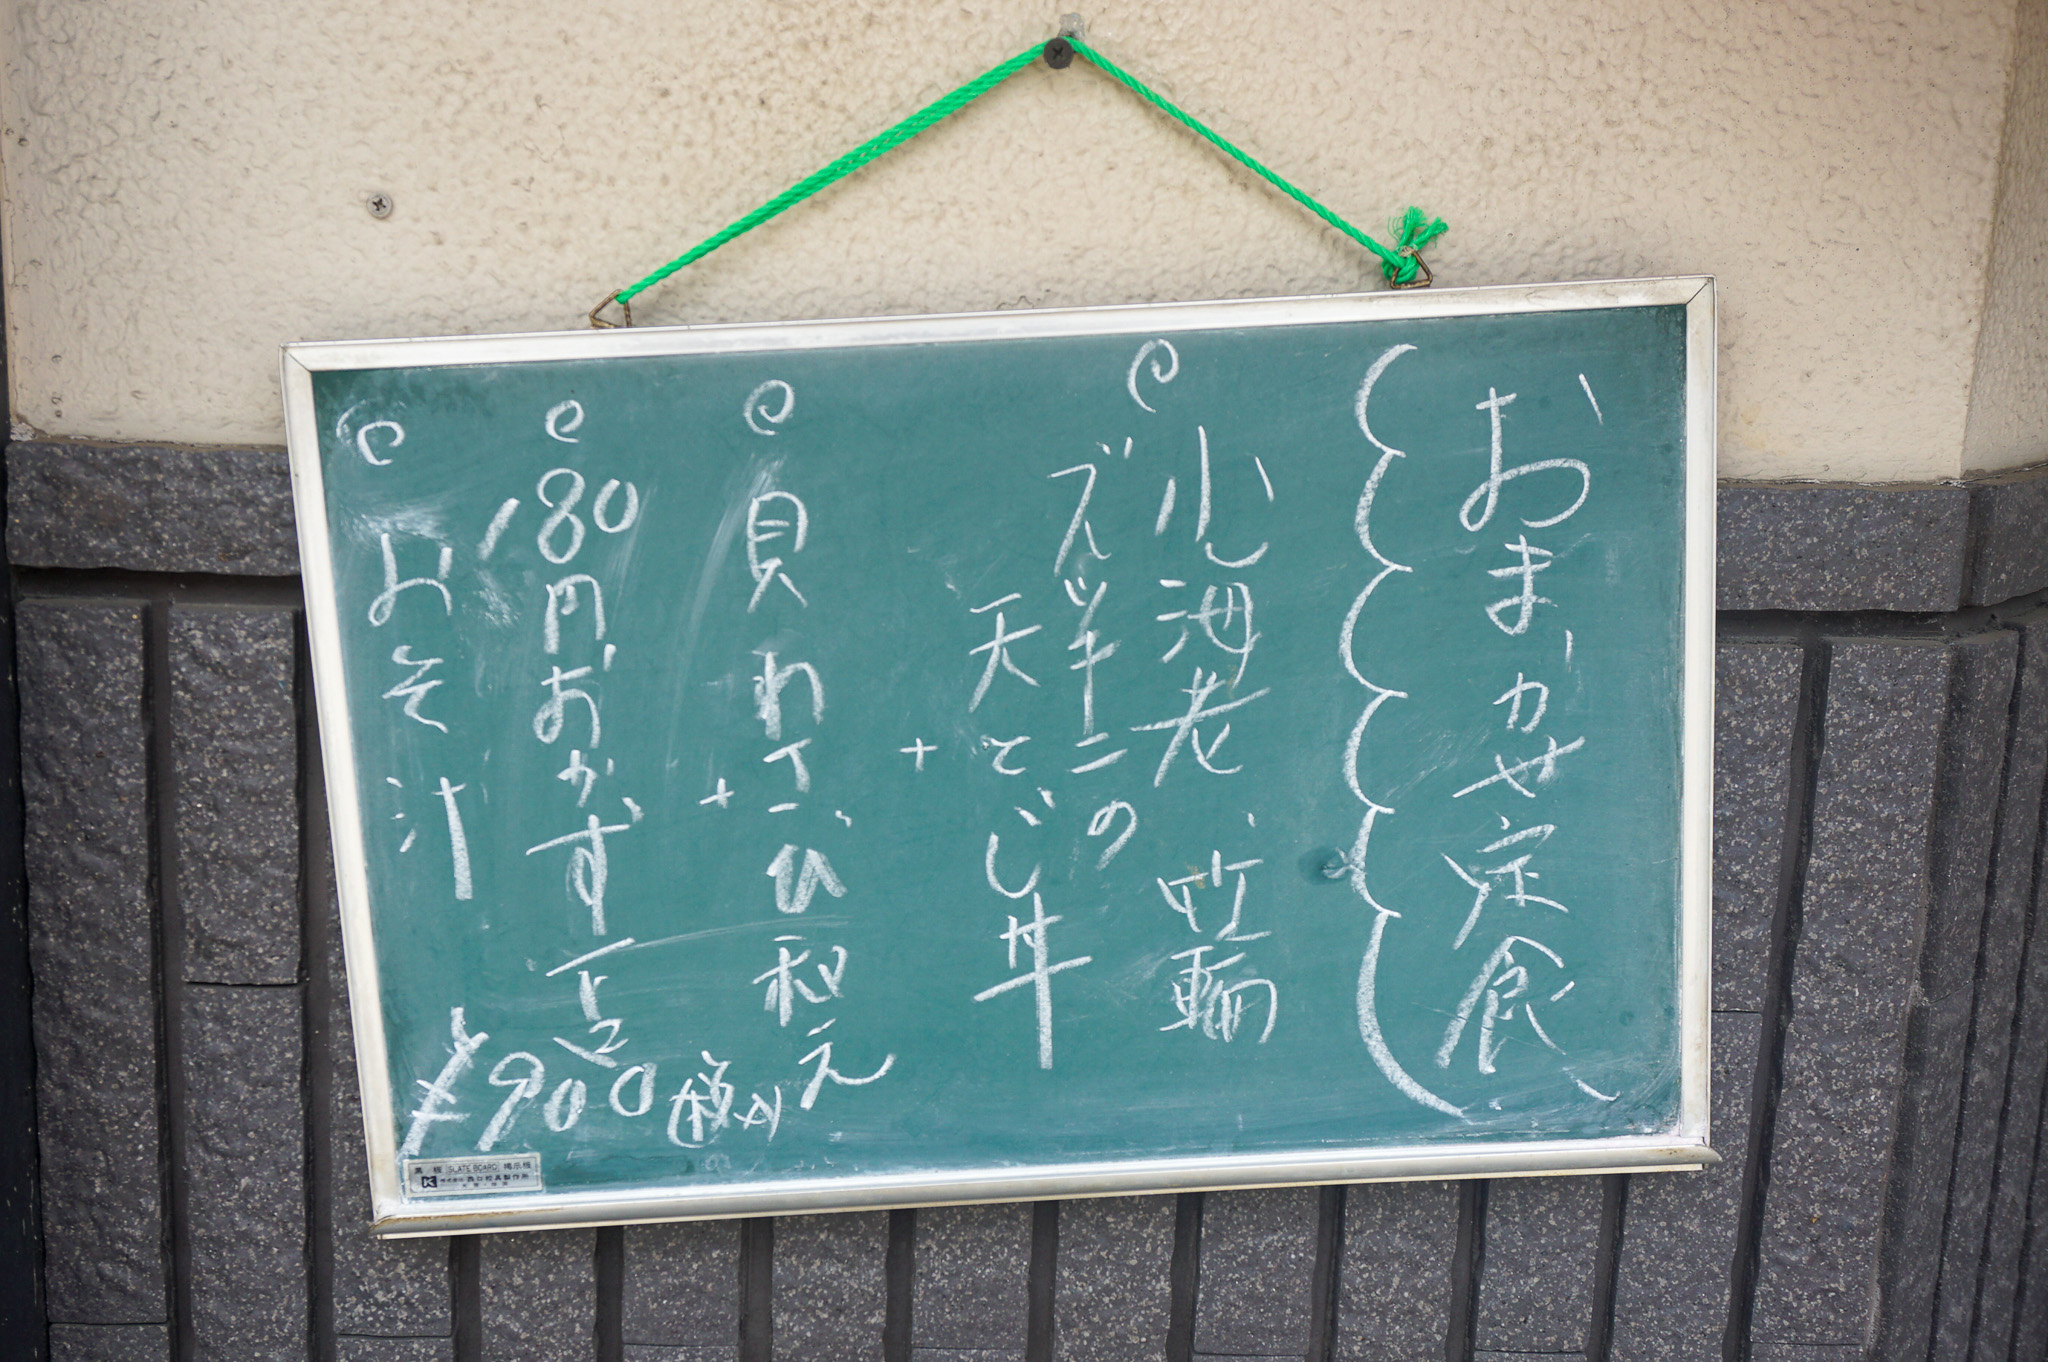 おまかせ定食
小海老 竹輪
ズッキーニの
天とじ丼
+
貝わさび和え
+
180円おかず一品
おそ汁
¥900税込
黒板 SLATE BOARD 掲示板